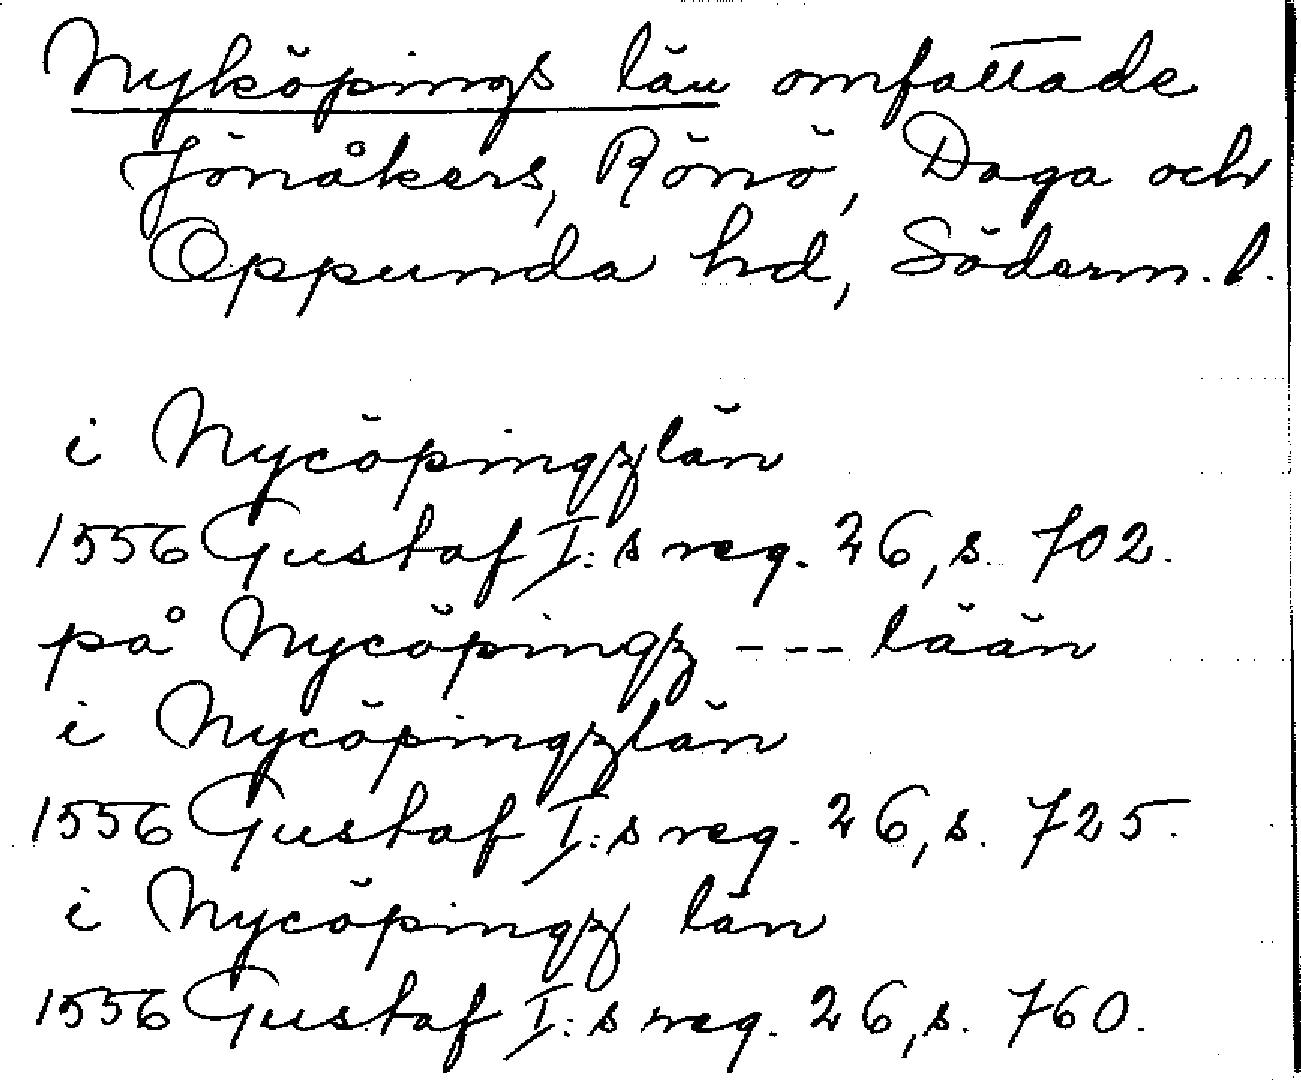 Nyköpings län omfattade
Jönåkers, Rönö, Daga och
Oppunda hd, Söderm. l.
i Nycöpingzlän
1556 Gustaf I:s reg. 26, s. 702.
på Nycöpingz --- lään
i Nycöpingzlän
1556 Gustaf I:s reg. 26, s. 725.
i Nycöpingz län
1556 Gustaf I:s reg. 26, s. 760.